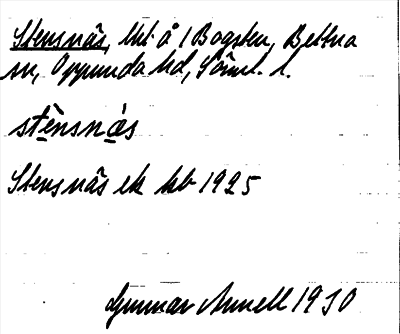 Stensnäs, lht å 1 Bogsten, Bettna
sn, Oppunda hd, Söml. l.
stènsnä̀s
Stensnäs ek kb 1925
Gunnar Annell 1930